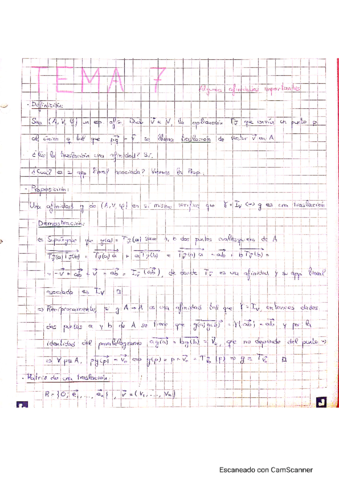 TEMA 7
Algunas afinidades importantes
- Definición:
Sea (A, V, φ) un esp. afín. Dado v⃗ ∈ V, la aplicación T_v⃗ que asocia un punto p
al único q tal que pq⃗ = v⃗ se llama traslación de vector v⃗ en A.
¿Es la traslación una afinidad? Sí.
¿Cuál es su app lineal asociada? Veamos en Prop.
- Proposición:
Una afinidad g de (A, V, φ) en sí mismo verifica que g⃗ = I_V ⟺ g es una traslación
Demostración:
⇐ Supongamos que g(a) = T_v⃗(a) sean a, b dos puntos cualesquiera de A
de donde T_v⃗ es una afinidad y su app lineal
asociada es I_V
⇒ Recíprocamente si g: A → A es una afinidad tal que g⃗ = I_V, entonces dados
dos puntos a y b de A se tiene que g(a)g(b)⃗ = g⃗(ab⃗) = ab⃗ y por la
identidad del paralelogramo ag(a)⃗ = bg(b)⃗ = v⃗, que no depende del punto ⇒
- Matriz de una traslación:
R = {O; e⃗₁, ..., e⃗ₙ}, v⃗ = (v₁, ..., vₙ)
Escaneado con CamScanner